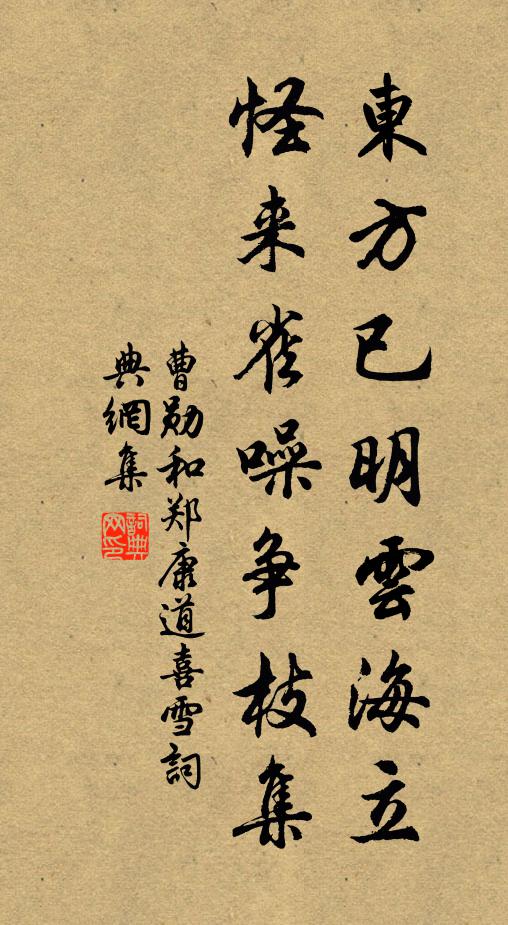 東方已明雲海立
怪来雀噪争枝集
曹勋和郑康道喜雪詞
典網集
詞典
网印